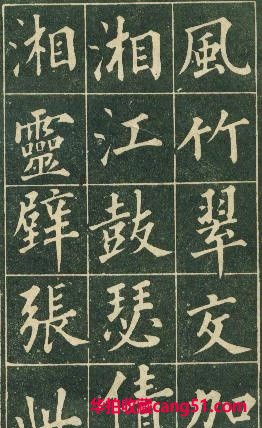 風竹翠交加
湘江鼓瑟倩
湘靈壁張
华拍收藏cang51.com